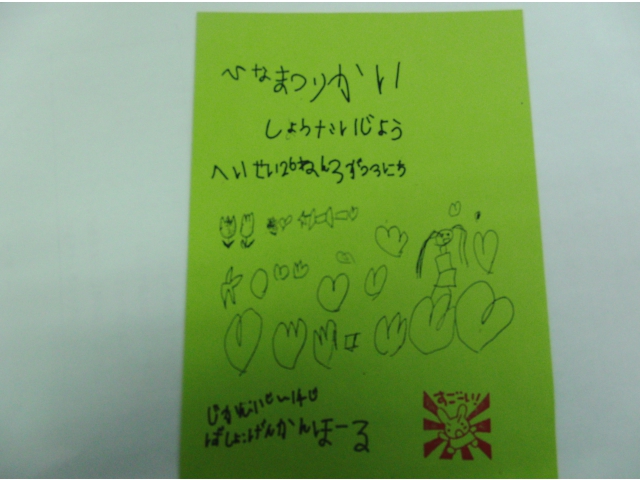 ひなまつりかい
しょうたいじょう
へいせい26ねん3がつ3にち
ばしょ:げんかんほーる
すごーい!